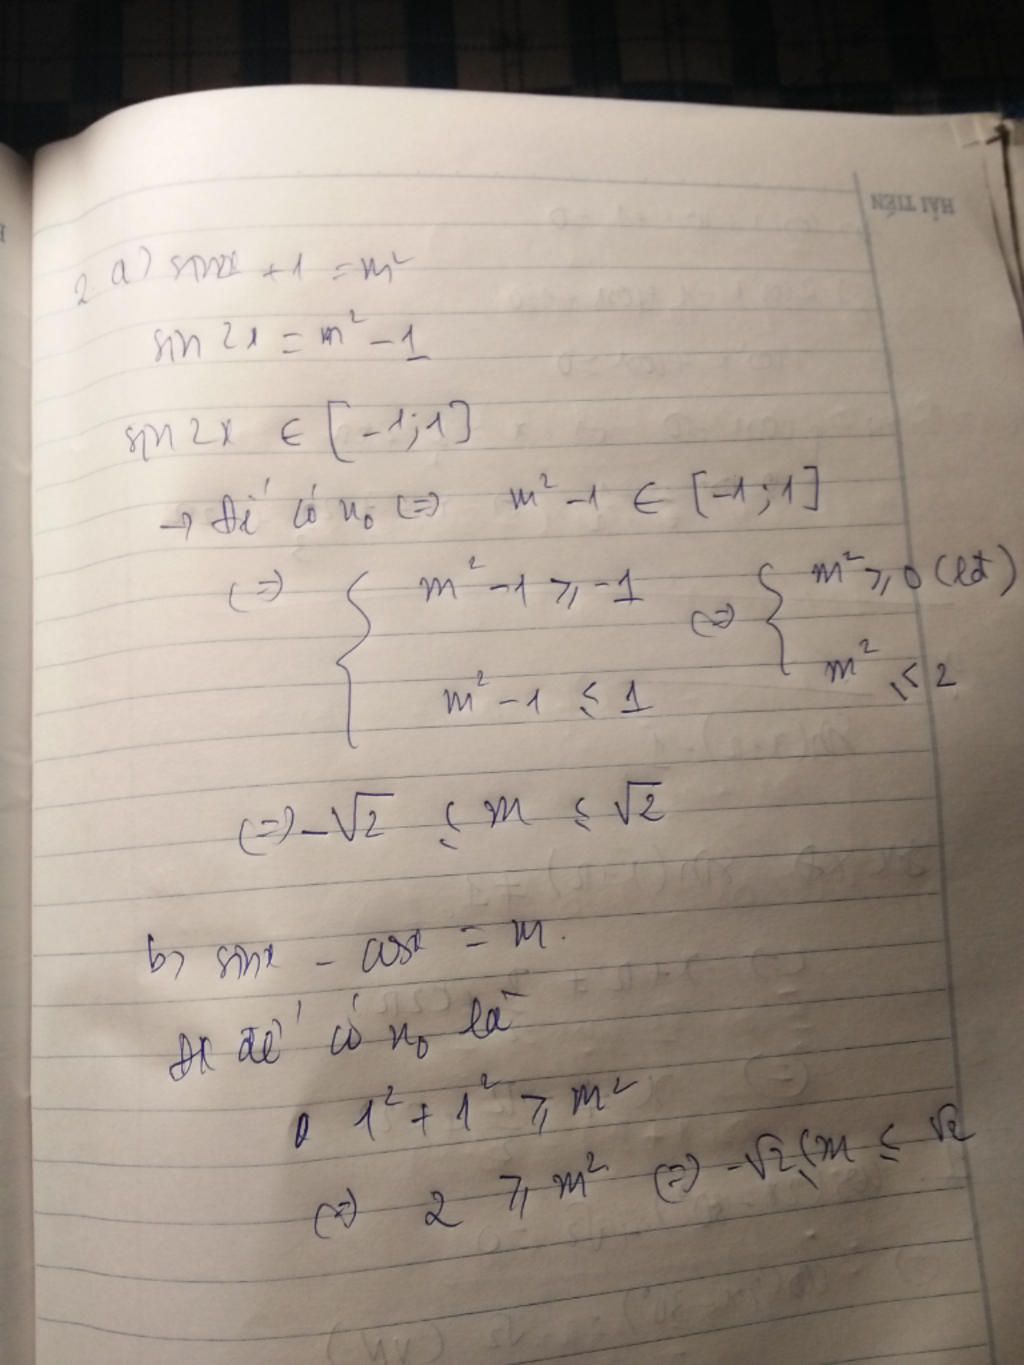 HẢI TIẾN
2 a) sin2x + 1 = m²
sin 2x = m² - 1
sin 2x ∈ [-1; 1]
→ Để có n₀ (=) m² - 1 ∈ [-1; 1]
(=) { m² - 1 ⩾ -1 (=) { m² ⩾ 0 (lđ)
m² - 1 ⩽ 1 m² ⩽ 2
(=) -√2 ⩽ m ⩽ √2
b) sinx - cosx = m.
Đk để có n₀ là
1² + 1² ⩾ m²
(=) 2 ⩾ m² (=) -√2 ⩽ m ⩽ √2